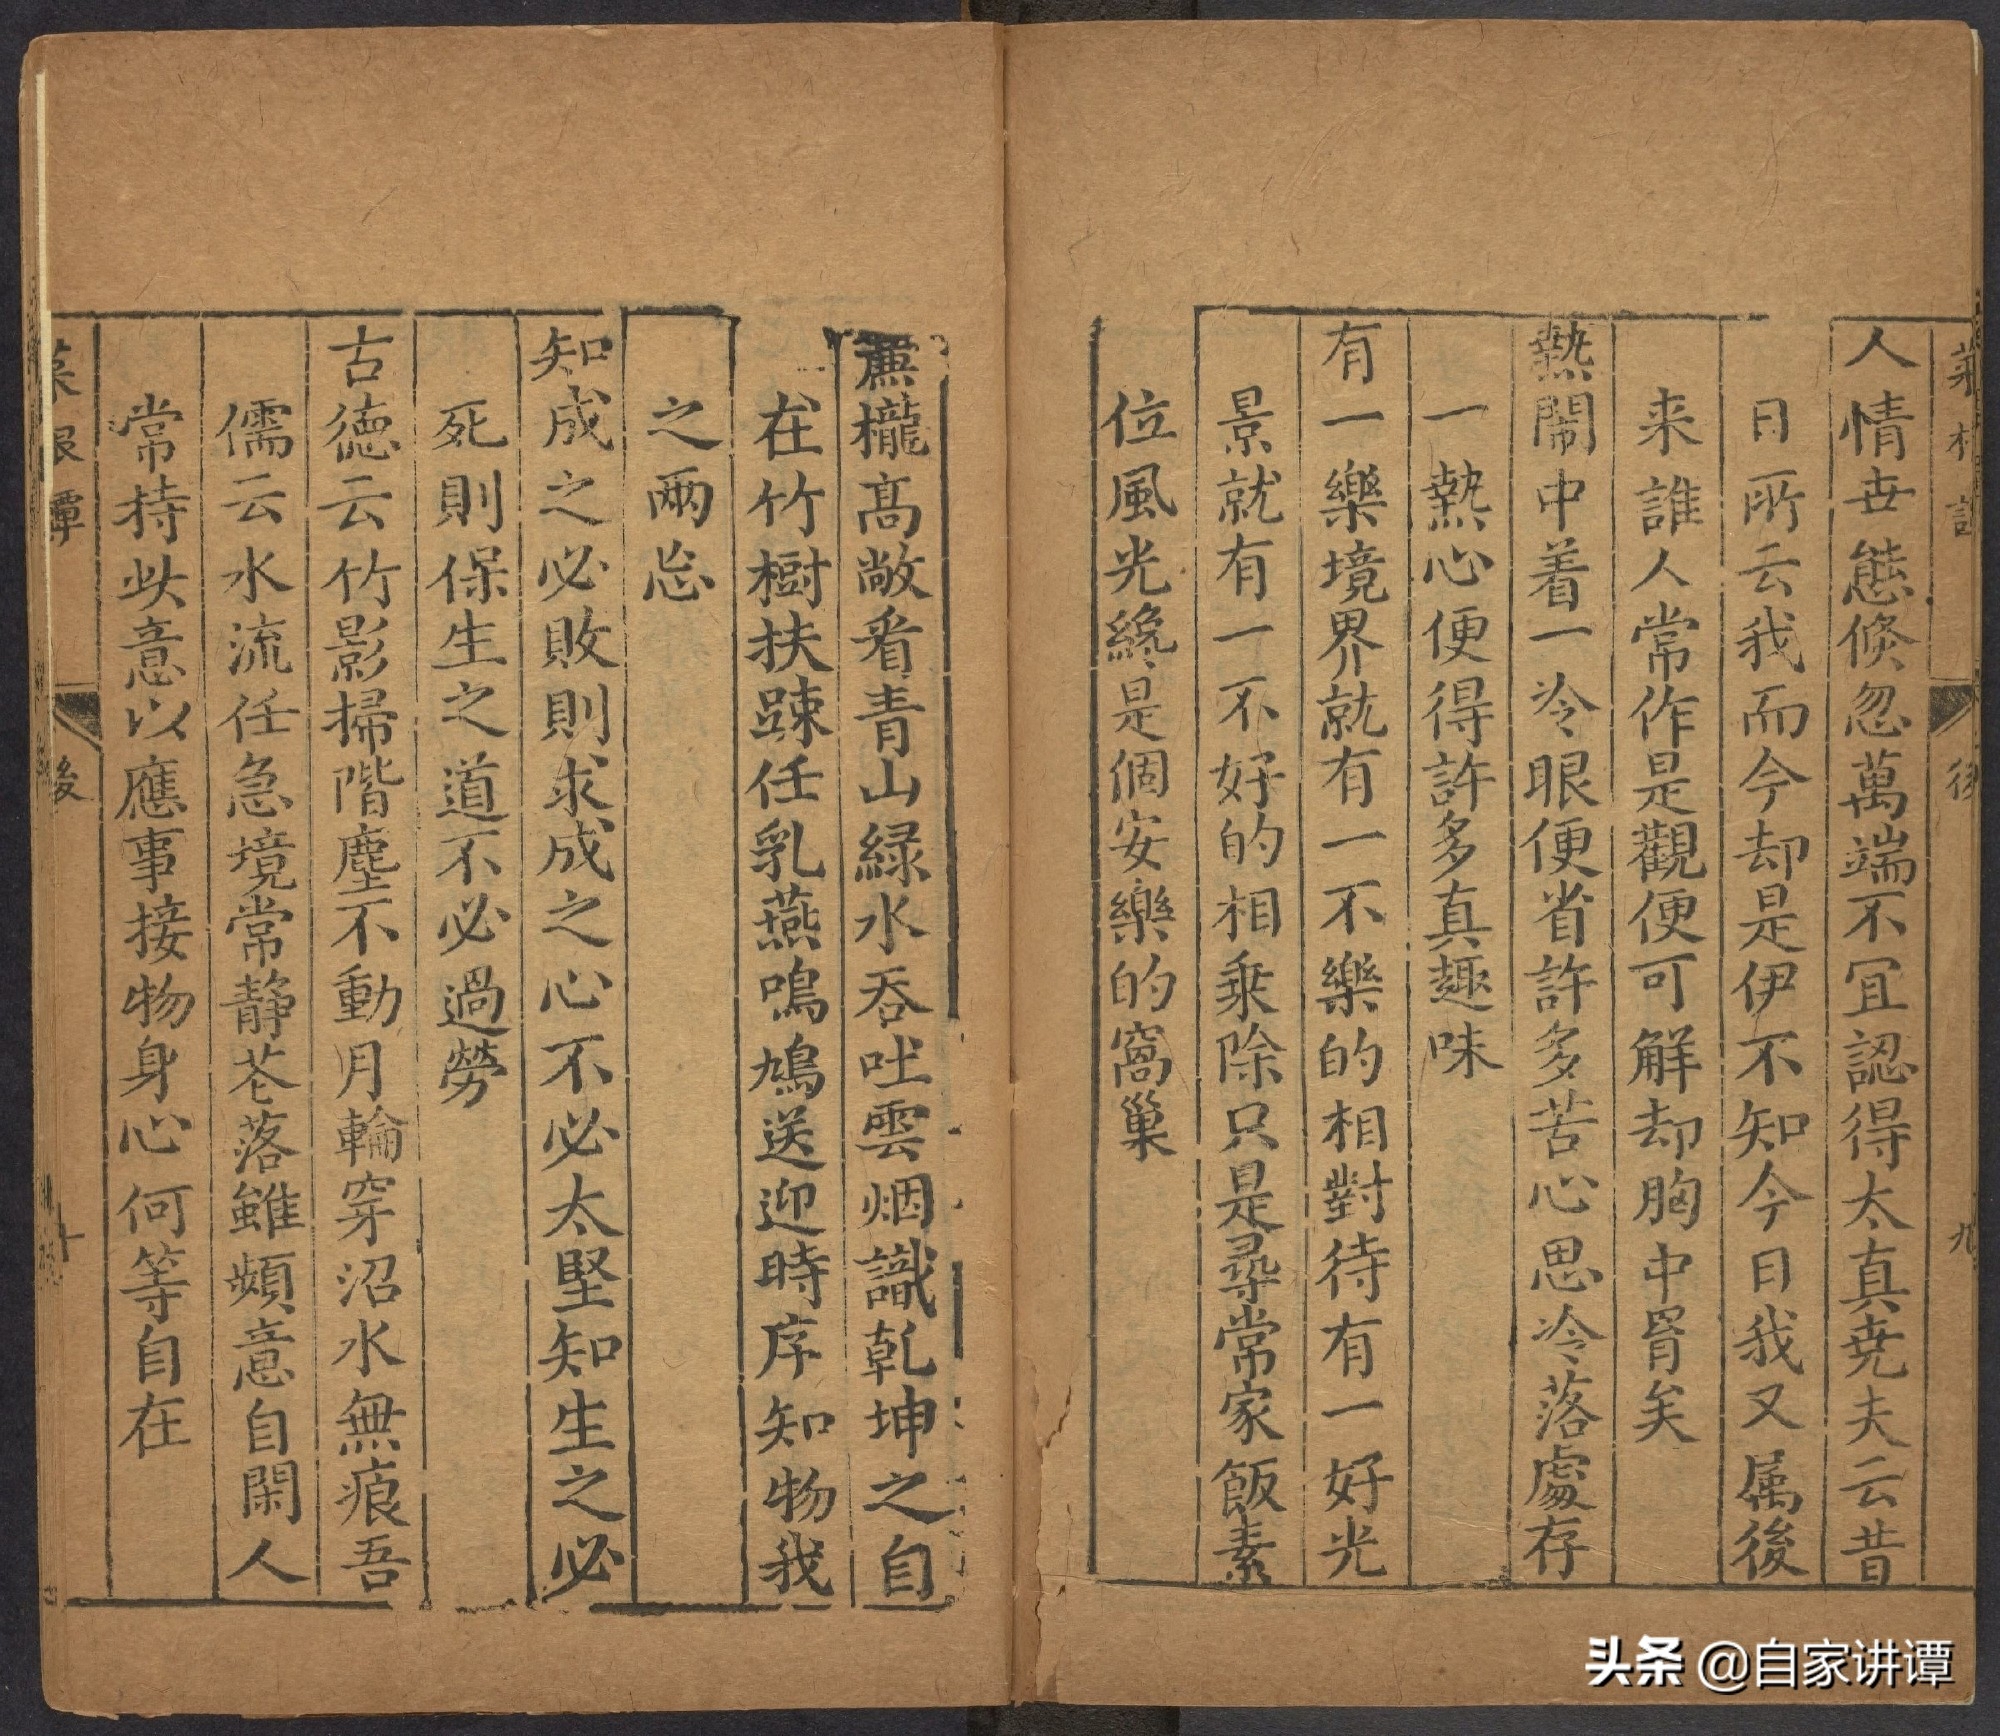 人情世態倏忽萬端不冝認得太真尭夫云昔
日所云我而今却是伊不知今日我又属後
来誰人常作是觀便可解却胸中胃矣
熱閙中着一冷眼便省許多苦心思冷落處存
一熱心便得許多真趣味
有一樂境界就有一不樂的相對待有一好光
景就有一不好的相乗除只是尋常家飯素
位風光纔是個安樂的窩巢
櫳高敞看青山緑水吞吐雲烟識乾坤之自
在竹樹扶踈任乳燕鳴鳩送迎時序知物我
之兩忘
知成之必敗則求成之心不必太堅知生之必
死則保生之道不必過勞
古德云竹影掃階塵不動月輪穿沼水無痕吾
儒云水流任急境常静花落雖頻意自閑人
常持此意以應事接物身心何等自在
後
头条 @自家讲谭